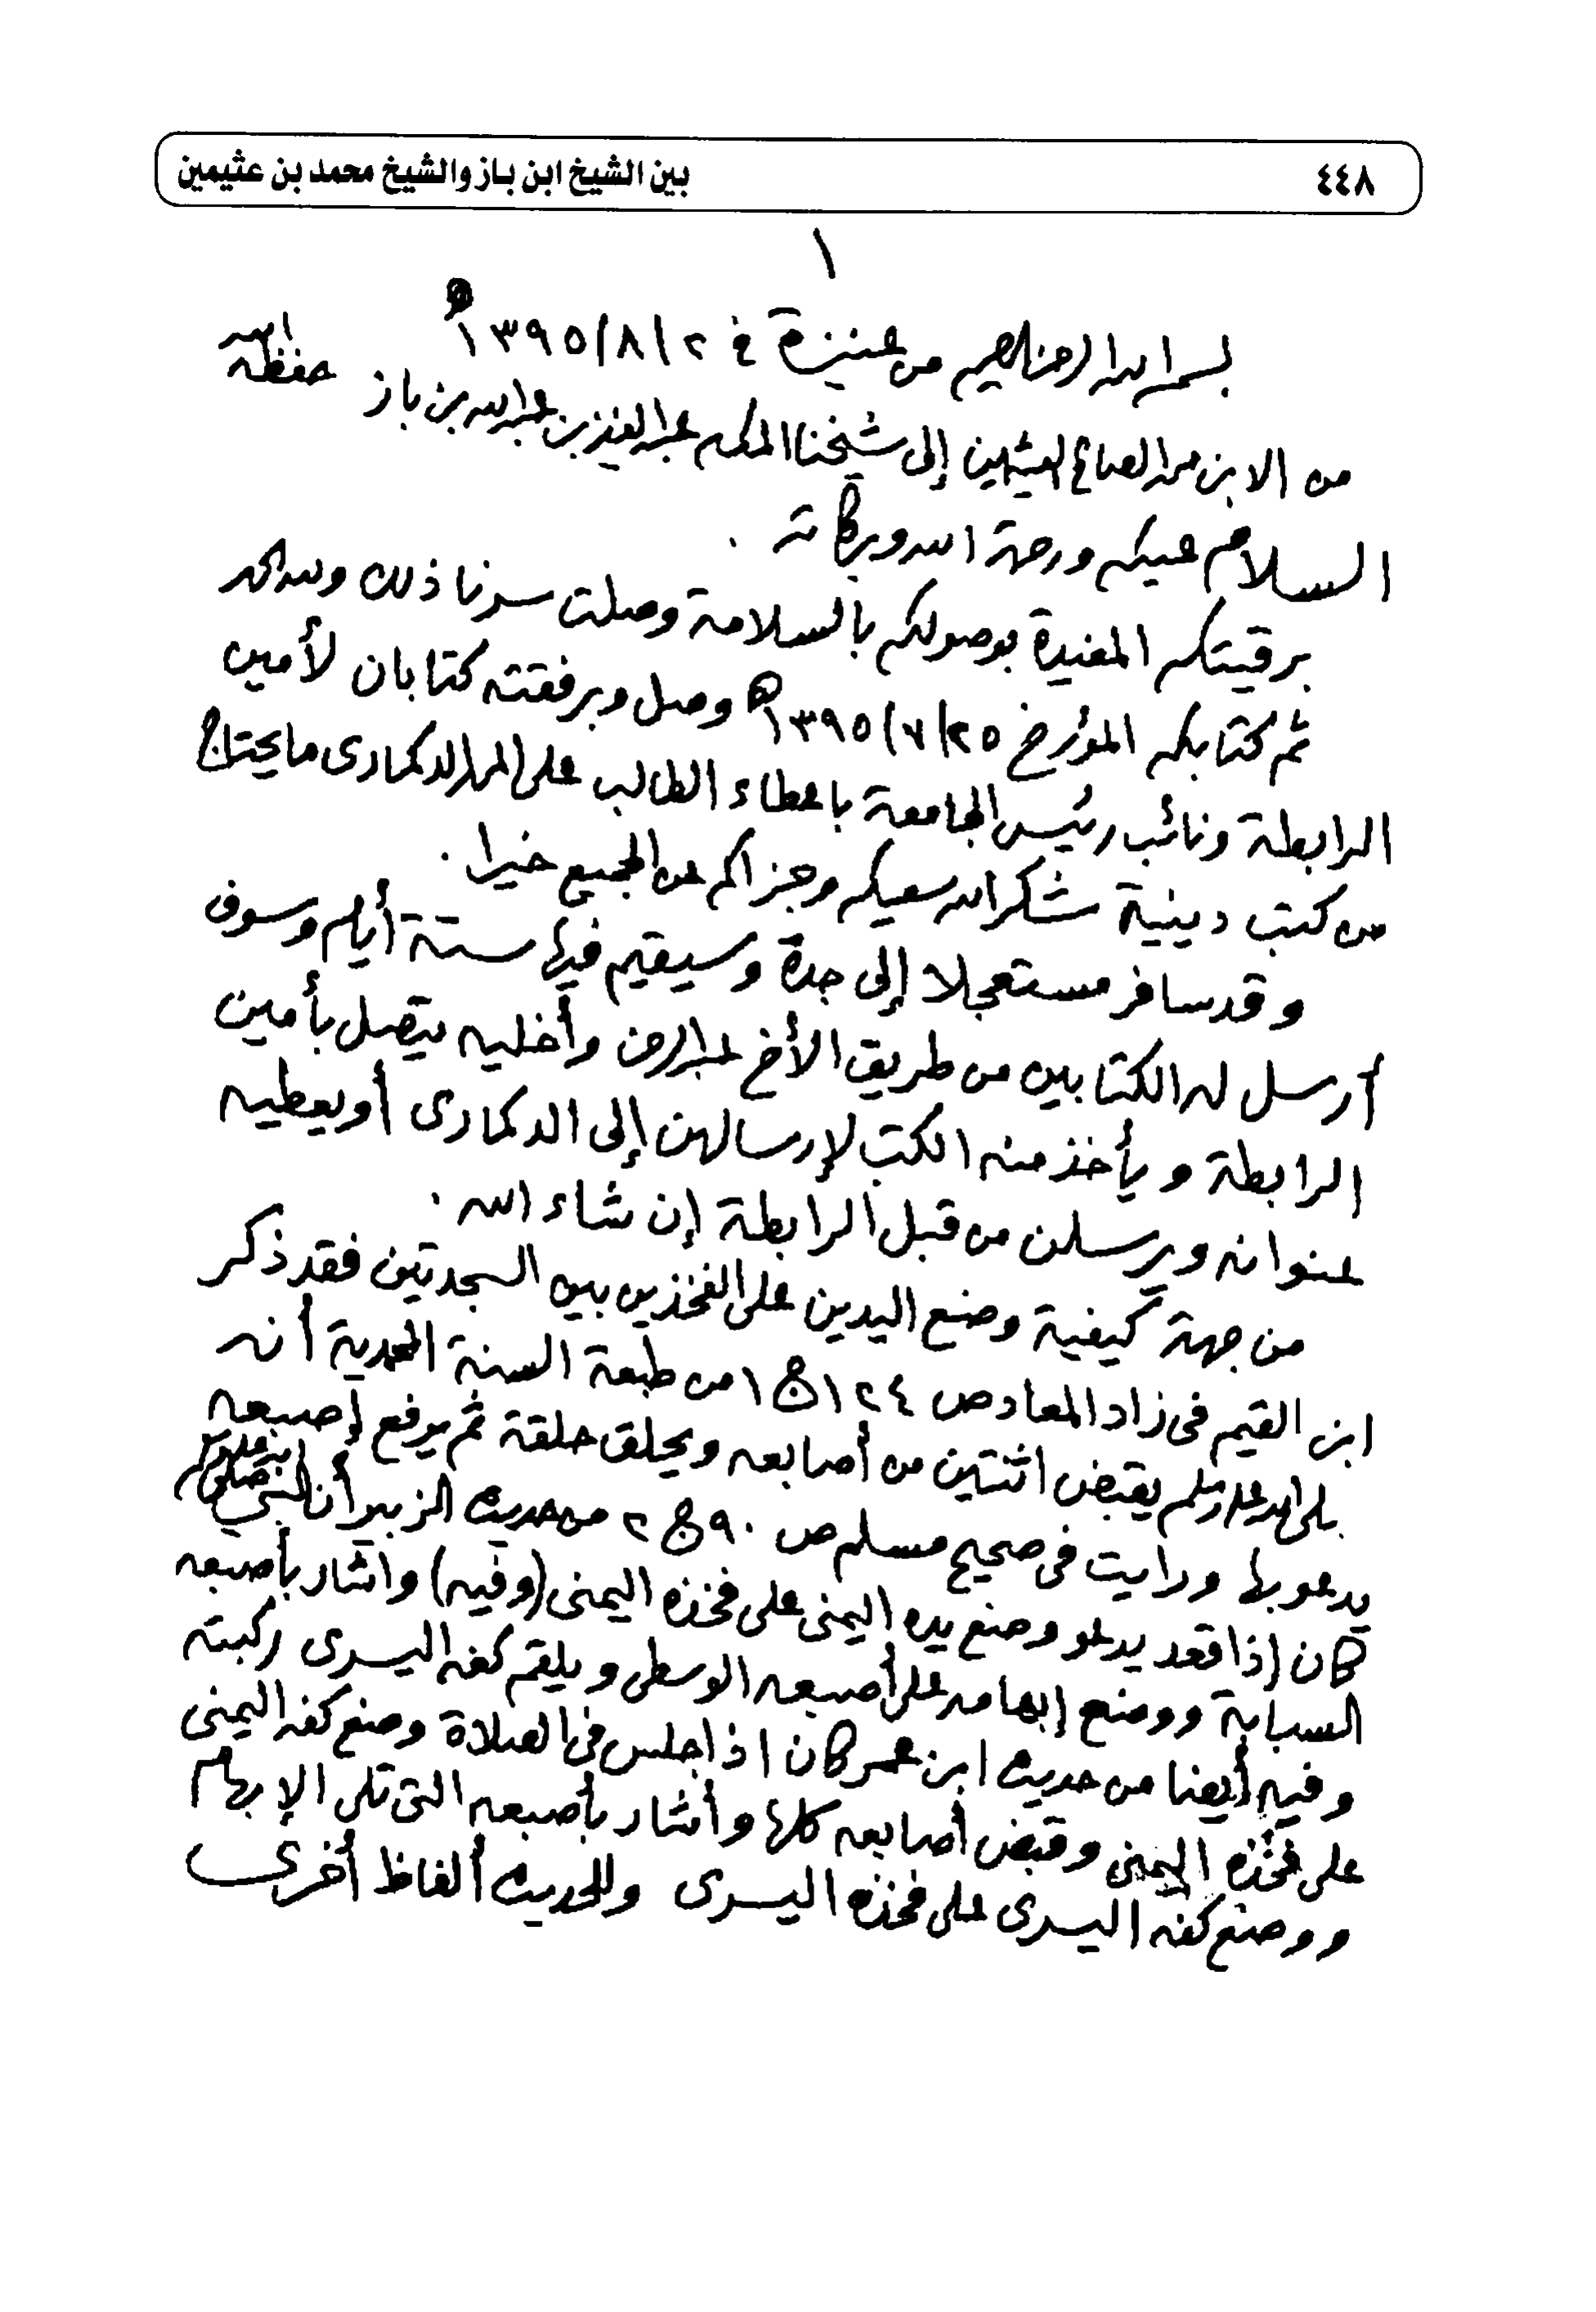 ٤٤٨ بين الشيخ ابن باز والشيخ محمد بن عثيمين
١
بسم الله الرحمن الرحيم من عنيزة في ٢/٨/١٣٩٥هـ
من الابن محمد الصالح العثيمين إلى شيخنا المكرم عبدالعزيز بن عبدالله بن باز حفظه الله
السلام عليكم ورحمة الله وبركاته .
برقيتكم المفيدة بوصولكم بالسلامة وصلت سرنا ذلك ولله الحمد
ثم كتابكم المؤرخ ٢٥/٧/١٣٩٥هـ وصل وبرفقته كتابان لأمين
الرابطة ونائب رئيس الجامعة باعطاء الطالب على المر الدكماري ما يحتاج
من كتب دينية شكر الله سعيكم وجزاكم عن الجميع خيرا .
وقد سافر مستعجلا إلى جدة وسيقيم فيها ستة أيام وسوف
أرسل له الكتابين من طريق الأخ عبدالرحمن وأخليه يتصل بأمين
الرابطة ويأخذ منه الكتب لإرسالهن إلى الدكماري أو يعطيه
عنوانه ويرسلن من قبل الرابطة إن شاء الله .
من جهة كيفية وضع اليدين على الفخذين بين السجدتين فقد ذكر
ابن القيم في زاد المعاد ص ١٢٤ ج ١ من طبعة السنة المحمدية أنه
صلى الله عليه وسلم يقبض اثنتين من أصابعه ويحلق حلقة ثم يرفع إصبعه
يدعو بها ورايت في صحيح مسلم ص ٩٠ ج ٢ من حديث الزبير أن النبي صلى الله عليه وسلم
كان إذا قعد يدعو وضع يده اليمنى على فخذه اليمنى (وفيه) واشار بأصبعه
السبابة ووضع إبهامه على أصبعه الوسطى ويلقم كفه اليسرى ركبته
وفيه أيضا من حديث ابن عمر كان اذا جلس في الصلاة وضع كفه اليمنى
على فخذه اليمنى وقبض أصابعه كلها وأشار بأصبعه التي تلي الإبهام
ووضع كفه اليسرى على فخذه اليسرى وللحديث ألفاظ أخرى